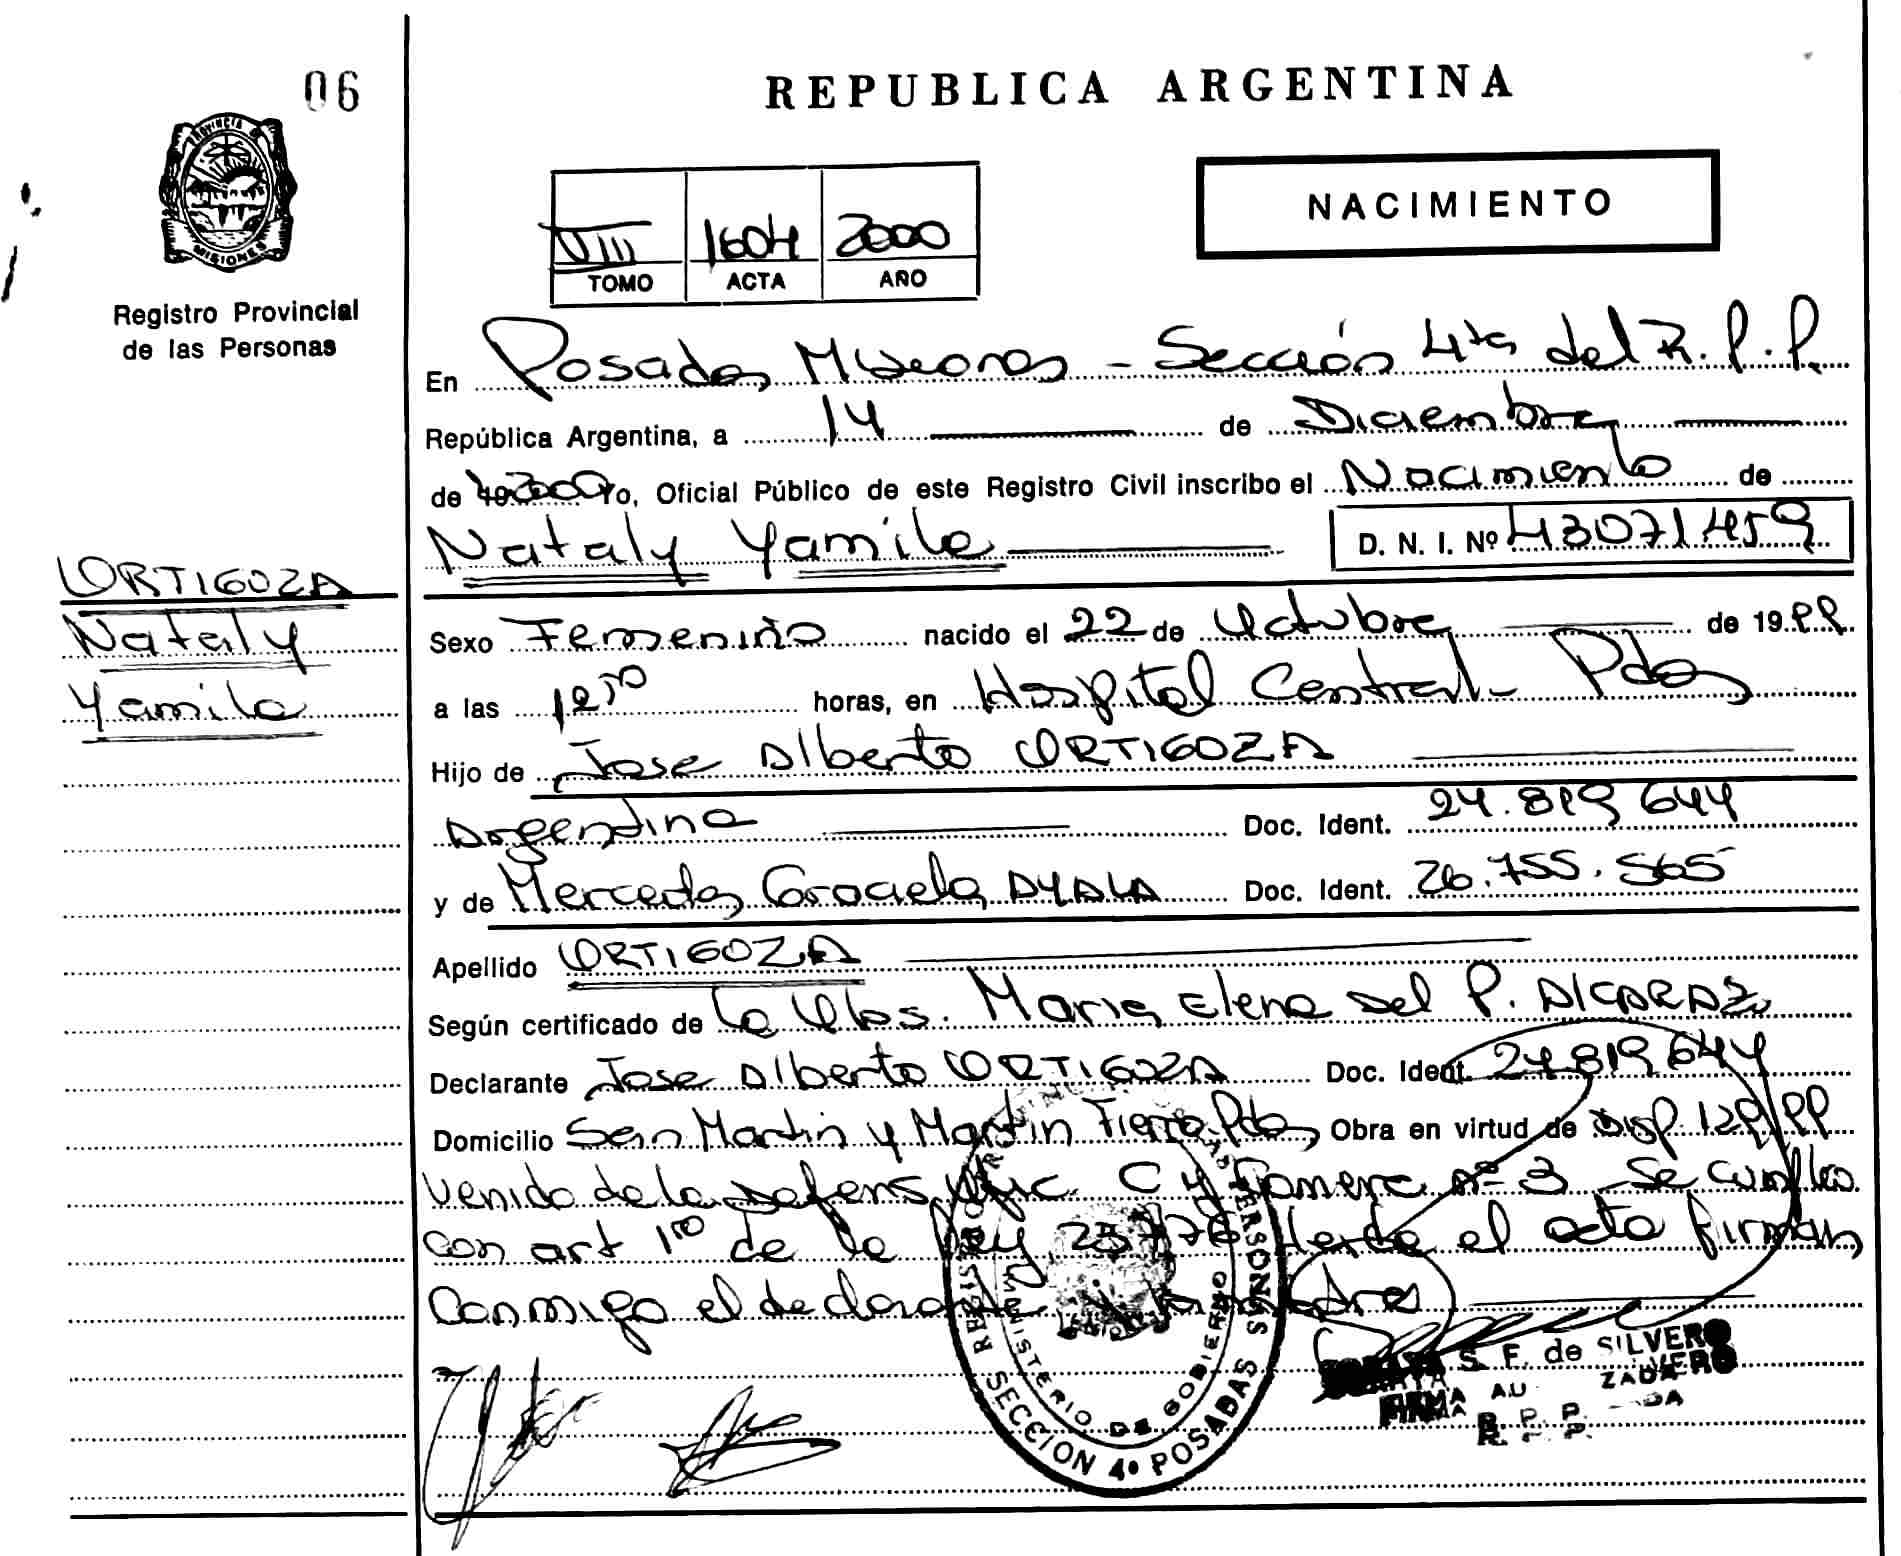 06
PROVINCIA DE
MISIONES
Registro Provincial
de las Personas
ORTIGOZA
Nataly
Yamila
REPUBLICA ARGENTINA
NACIMIENTO
VIII 1604 2000
TOMO ACTA AÑO
En Posadas Misiones - Sección 4ta del R.P.P.
República Argentina, a 14 de Diciembre
de 2000 Yo, Oficial Público de este Registro Civil inscribo el Nacimiento de
Nataly Yamila D. N. I. Nº 43071459
Sexo Femenino nacido el 22 de Octubre de 1999
a las horas, en Hospital Central - Pdas
Hijo de Jose Alberto ORTIGOZA
Argentina Doc. Ident. 24.819 644
y de Mercedes Graciela AYALA Doc. Ident. 26.755.565
Apellido ORTIGOZA
Según certificado de la Obs. Maria Elena del P. ALCARAZ
Declarante Jose Alberto ORTIGOZA Doc. Ident. 24.819 644
Domicilio San Martin y Martin Fierro Pdas Obra en virtud de Disp. 129/99
venido de la Defens. Ofic. C y nº 3 Se cumple
con art 1ro de la Ley el acta firman
Conmigo el declarante
REGISTRO PROVINCIAL DE LAS PERSONAS
MINISTERIO DE GOBIERNO
SECCION 4ª POSADAS
S. F. de SILVERO
FIRMA AUTORIZADA
R. P. P.